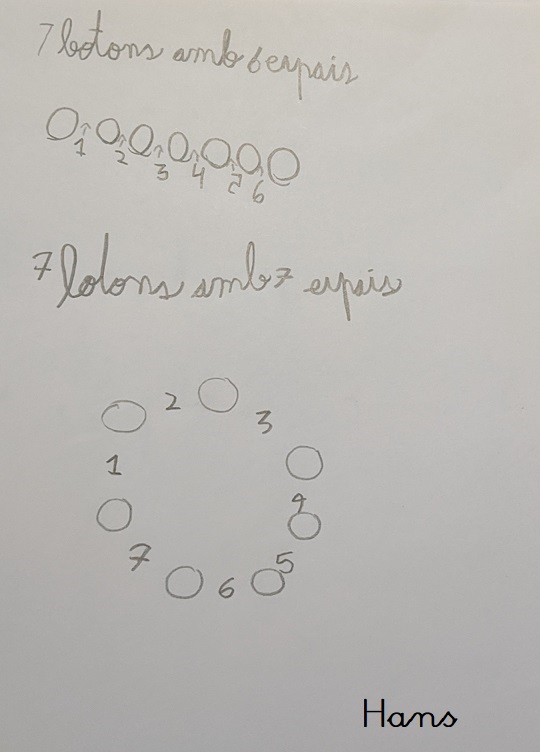 7 botons amb 6 espais
1 2 3 4 5 6
7 botons amb 7 espais
2
3
1
4
7
5
6
Hans